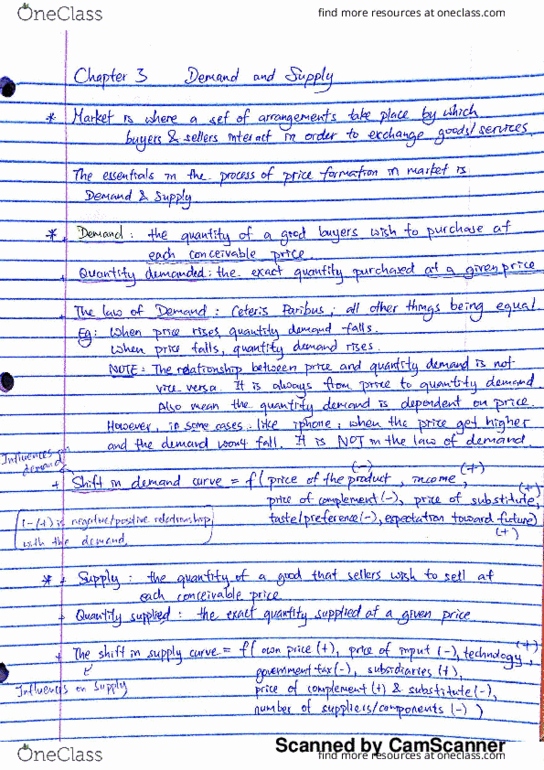 OneClass
find more resources at oneclass.com
Chapter 3 Demand and Supply
* Market is where a set of arrangements take place by which
buyers & sellers interact in order to exchange goods/services
The essentials in the process of price formation in market is
Demand & Supply
* Demand: the quantity of a good buyers wish to purchase at
each conceivable price.
Quantity demanded: the exact quantity purchased at a given price
The law of Demand: Ceteris Paribus; all other things being equal
Eg: When price rises, quantity demand falls.
When price falls, quantity demand rises.
NOTE: The relationship between price and quantity demand is not
vice versa. It is always from price to quantity demand
Also mean the quantity demand is dependent on price
However, in some cases, like iphone, when the price get higher
and the demand won't fall. It is NOT in the law of demand.
Influences on
demand
+ Shift in demand curve = f( price of the product (-), income (+),
price of complement (-), price of substitute (+),
taste/preference (-), expectation toward future)
(+)
(-(+) is negative/positive relationship
with the demand
* + Supply: the quantity of a good that sellers wish to sell at
each conceivable price
+ Quantity supplied: the exact quantity supplied at a given price
+ The shift in supply curve = f( own price (+), price of input (-), technology (+),
Influences on Supply
government tax (-), subsidiaries (+),
price of complement (+) & substitute (-),
number of suppliers/components (-) )
Scanned by CamScanner
OneClass
find more resources at oneclass.com